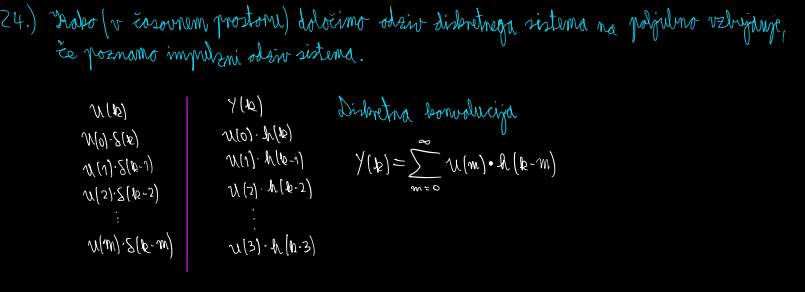 24.) Kako (v časovnem prostoru) določimo odziv diskretnega sistema na poljubno vzbujanje,
če poznamo impulzni odziv sistema.
u(k)
u(0)·δ(k)
u(1)·δ(k-1)
u(2)·δ(k-2)
⋮
u(m)·δ(k-m)
Y(k)
u(0)·h(k)
u(1)·h(k-1)
u(2)·h(k-2)
⋮
u(3)·h(k-3)
Diskretna konvolucija
Y(k)=∞∑m=0 u(m)•h(k-m)